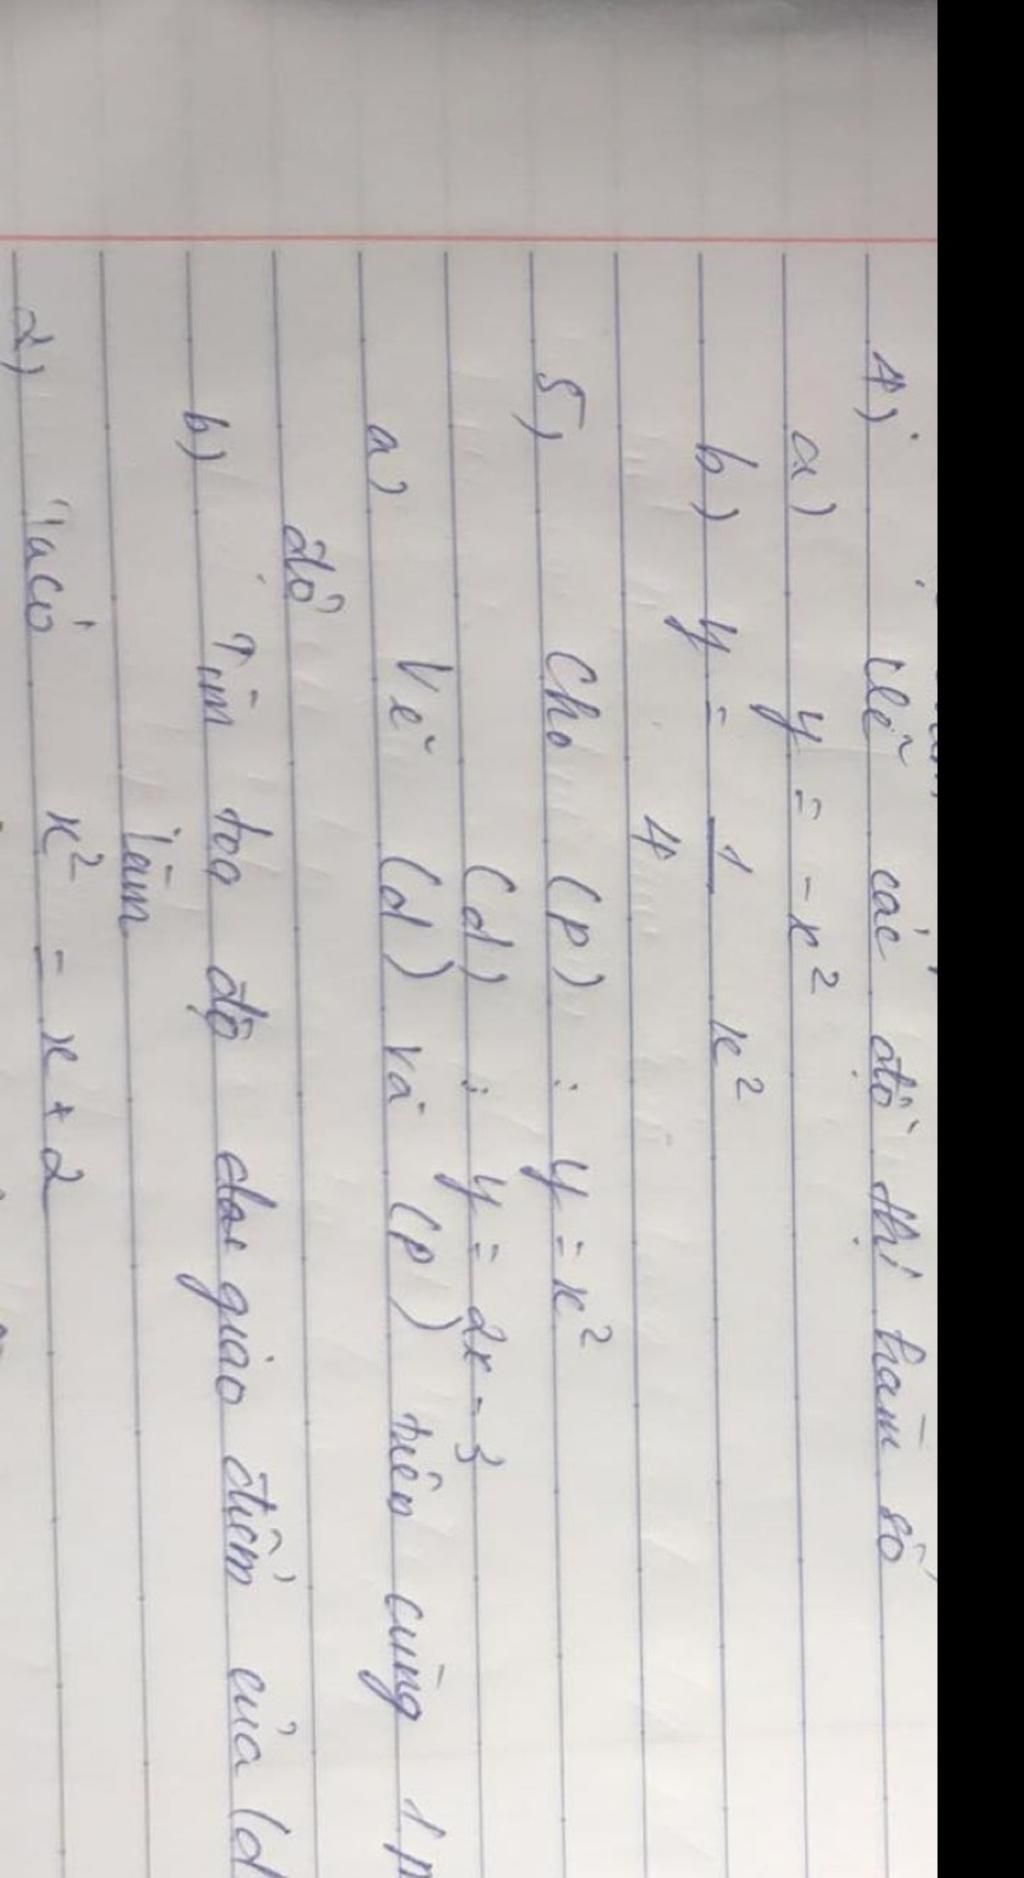 4) Vẽ các đồ thị hàm số
a) y = -x²
b) y = 1/4 x²
5) Cho (P) : y = x²
(d) : y = 2x - 3
a) Vẽ (d) và (P) trên cùng 1
độ
b) Tìm toạ độ các giao điểm của (d
Làm
2) Ta có x² = x + 2